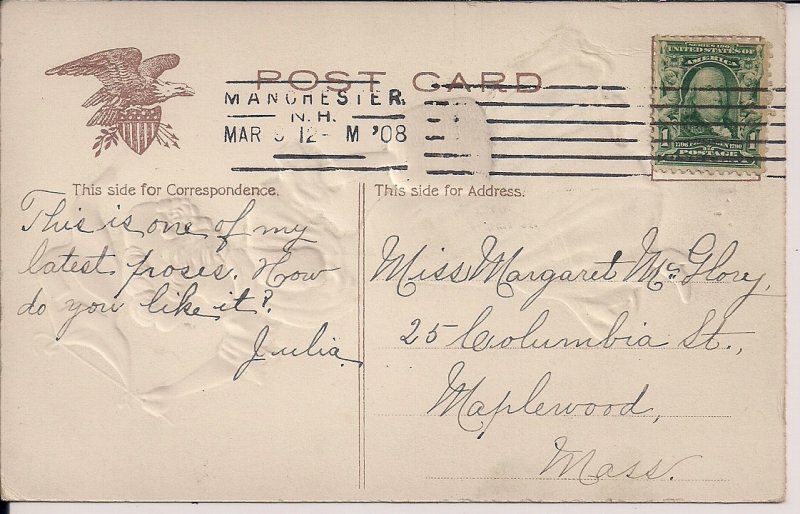 POST CARD
MANCHESTER,
N.H.
MAR 12- M '08
SERIES 1902
UNITED STATES OF
AMERICA
1 1
POSTAGE
This side for Correspondence.
This is one of my
latest poses. How
do you like it?
Julia.
This side for Address.
Miss Margaret McGlory,
25 Columbia St.,
Maplewood,
Mass.